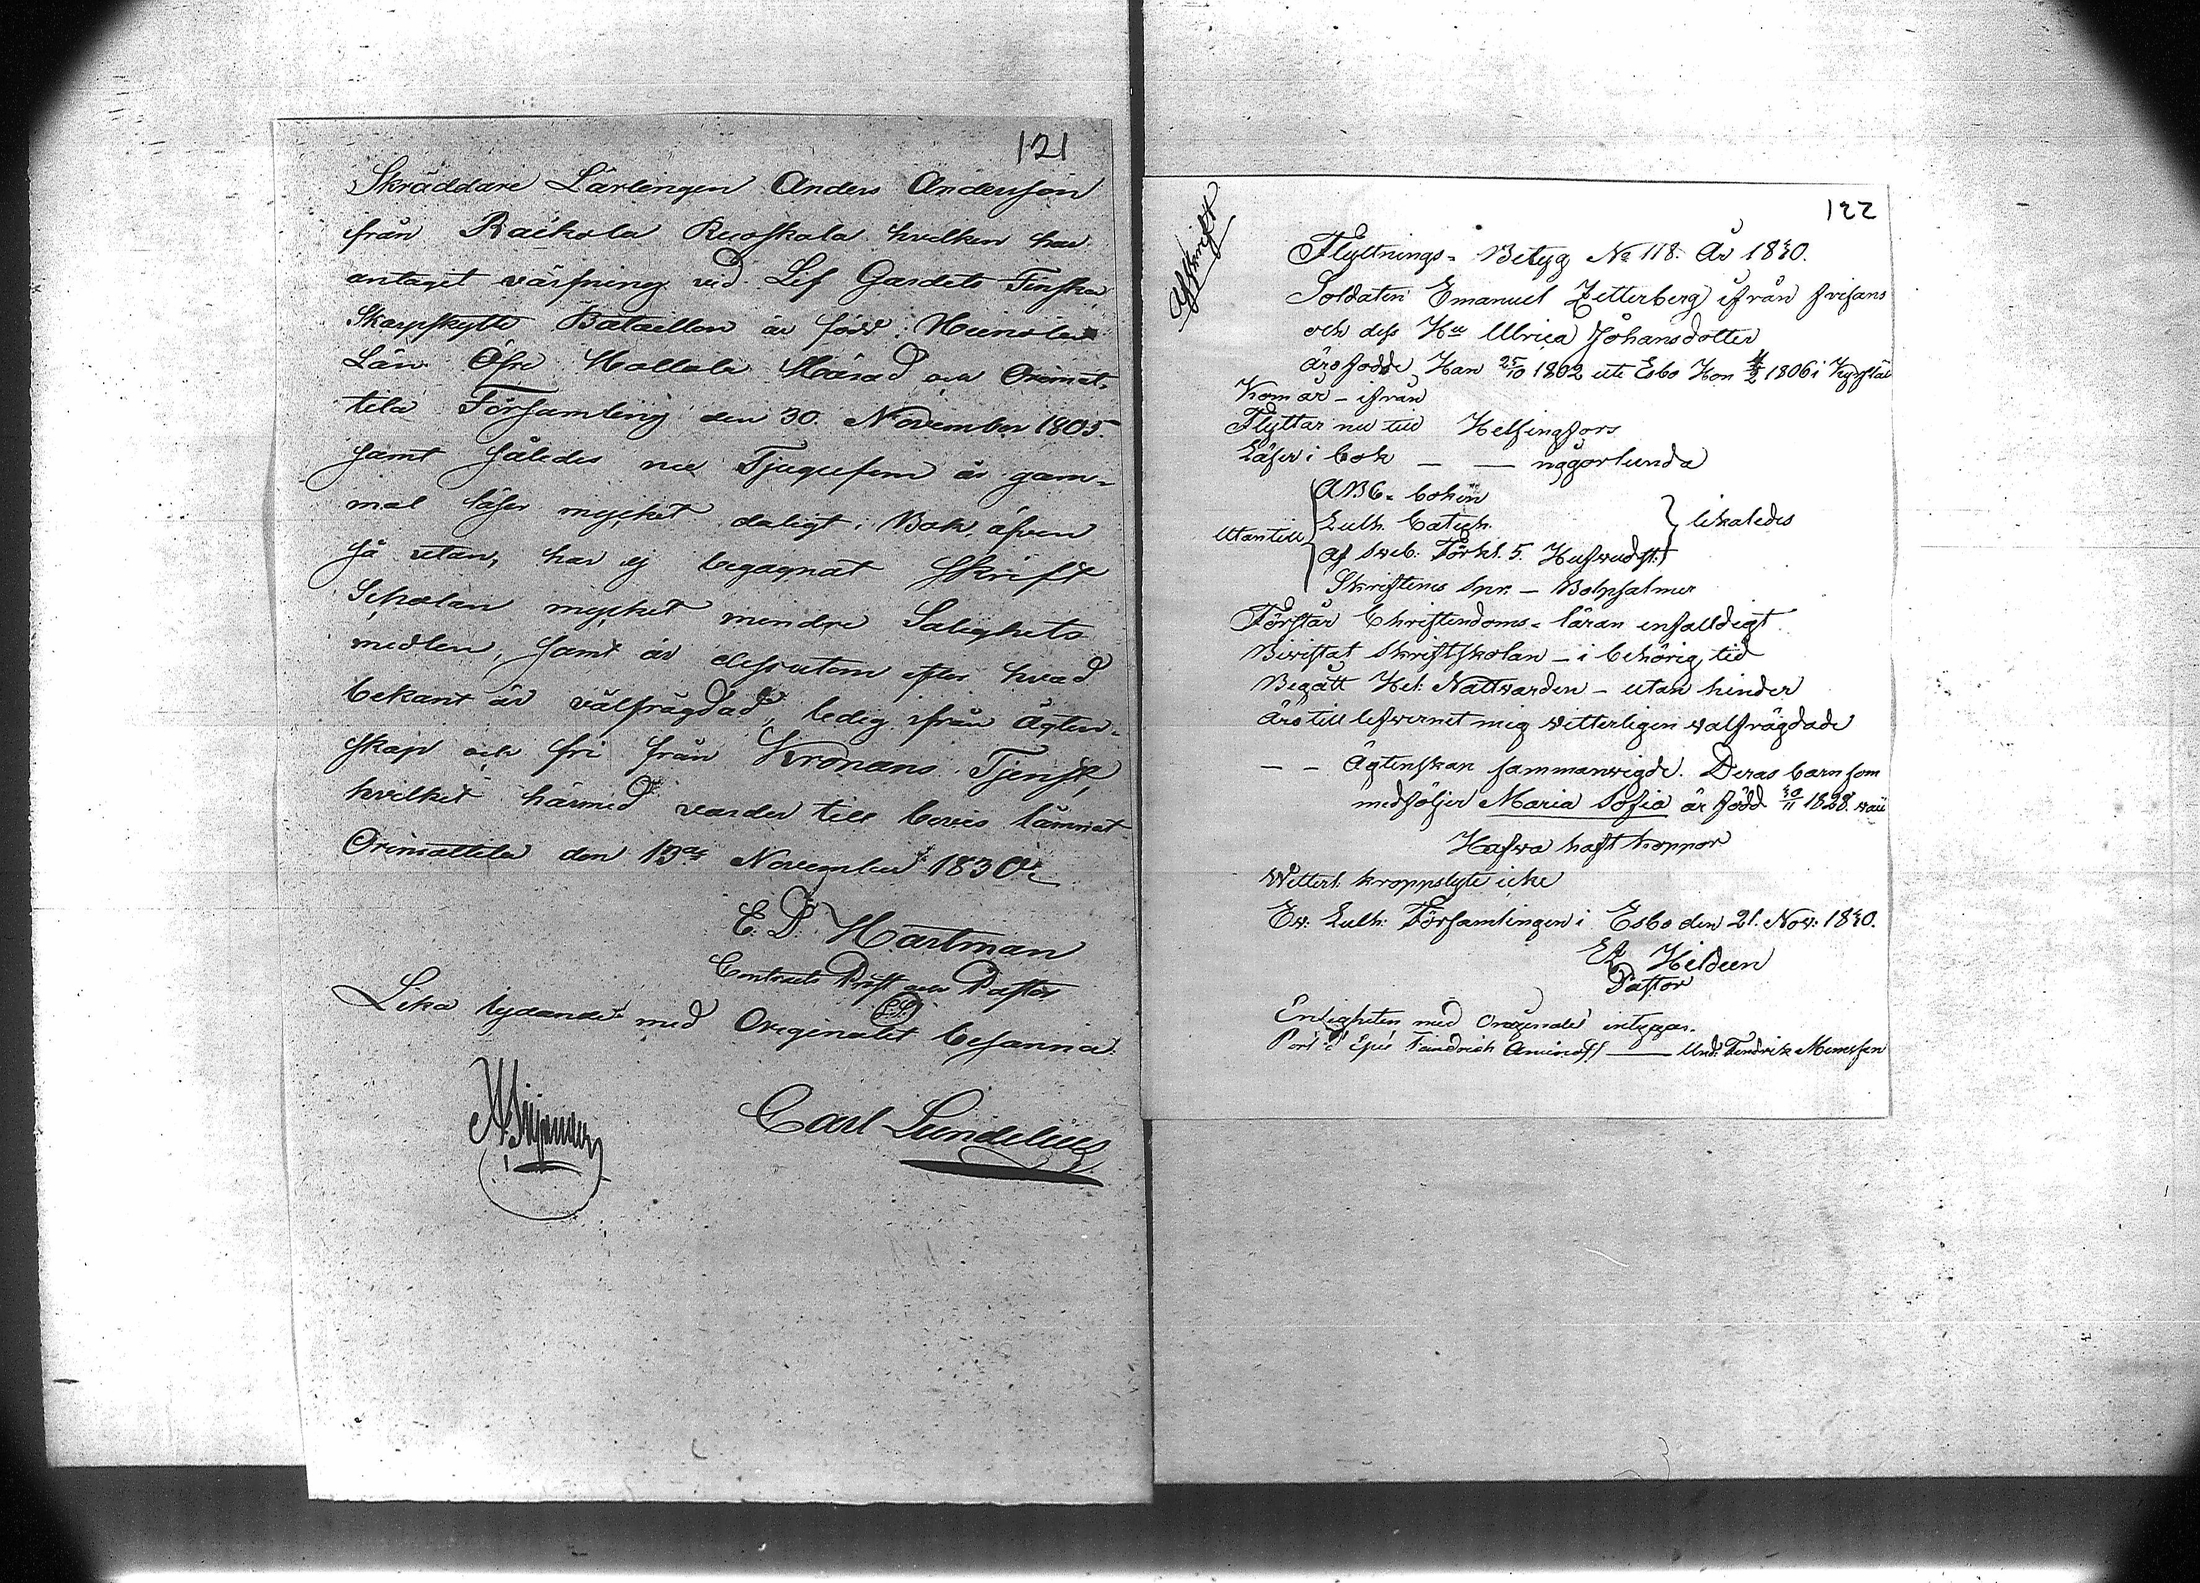 121
Skräddare Lärlingen Anders Andersson
från Raikola Ruoskala hvilken har
antaget värfning vid Lif Gardets Finska
Skarpskytte Bataillon är född i Heinola
Län Öfre Hollola Härad och Orimat-
tila Församling den 30. November 1805.
samt således nu Tjugufem år gam-
mal läser mycket daligt i Bok, äfven
så utan, har ej begagnat Skrift
Scholan mycket mindre Salighets
medlen, samt är dessutom efter hvad
bekant är välfrägdad, ledig ifrån Ägten-
skap och fri från Kronans Tjenst,
hvilket härmed varder till bevis lämnat
Orimattila den 19de November 1830.
E. D. Hartman
Contracts Prost och Pastor
Lika lydande med Originalet besanna:
Carl Lundelius
122
Afskrift
Flyttnings-Betyg No 118. År 1830.
Soldaten Emanuel Zetterberg ifrån Frisans
och dess Hu Ulrica Johansdotter
äro födde, Han 25/10 1802 uti Esbo Hon 1806 i Kyrkslät
Kom år – ifrån
Flyttar nu till Helsingfors
Läser i bok — — någorlunda
Utantill
ABC-boken
Luth. Catech.
af Sveb: Förkl. 5. Hufwudst:
Skriftenes Spr. – Botpsalmer
likaledes
Förstår Christendoms-läran enfalldigt
Bewistat Skriftskolan – i behörig tid
Begått Hel: Nattvarden – utan hinder
Äro till lefwernet mig witterligen walfrägdade
— — Ägtenskap sammanvigde. Deras barn som
medföljer Maria Sofia är född 30/11 1828. wac
Hafwa haft koppor
Witterl: kroppslyte icke
Ev: Luth: Församlingen i Esbo den 21. Nov: 1830.
Hildeen
Pastor
Enligheten med Originalet intygar.